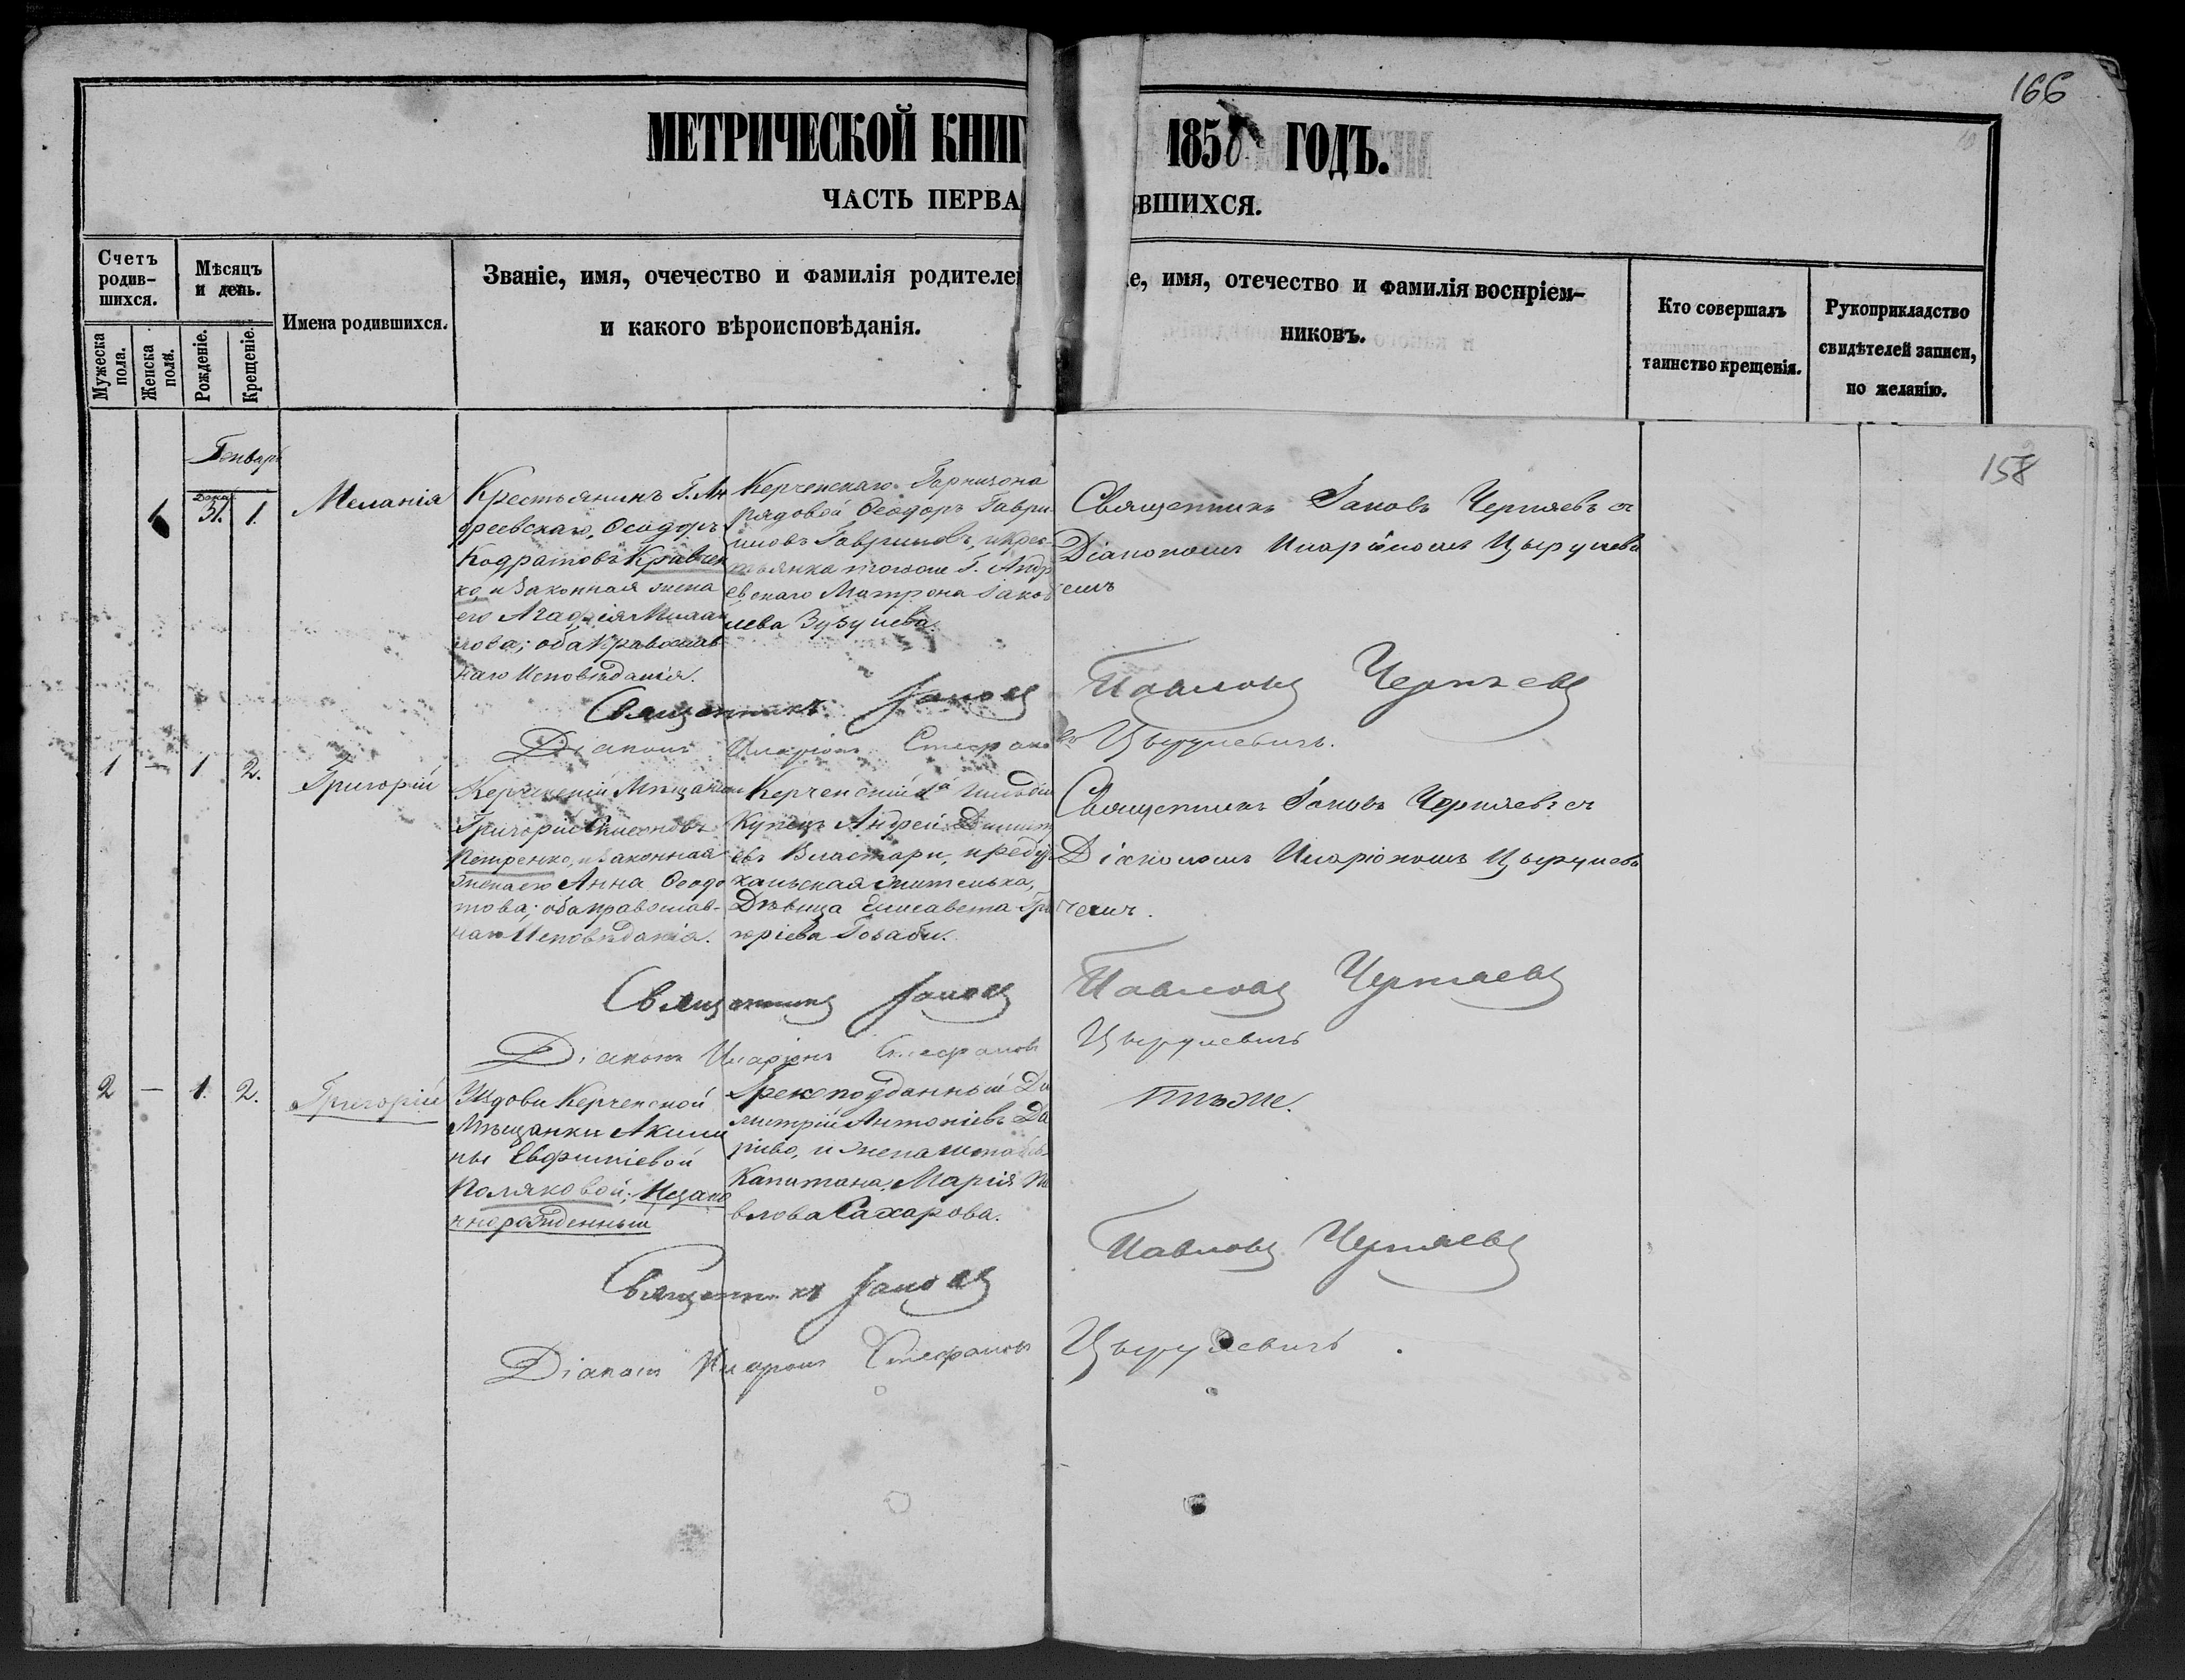 166
МЕТРИЧЕСКОЙ КНИГ
1858 ГОДЪ.
ЧАСТЬ ПЕРВА
ВШИХСЯ.
Счетъ родив-шихся.
Мужеска пола.
Женска пола.
Мѣсяцъ и день.
Рожденіе.
Крещеніе.
Имена родившихся.
Званіе, имя, очечество и фамилія родителей
и какого вѣроисповѣданія.
е, имя, отечество и фамилія воспріем-
никовъ.
Кто совершалъ
таинство крещенія.
Рукоприкладство
свидѣтелей записи,
по желанію.
158
Генварь
1 Дека. 31. 1.
Меланія
Крестьянинъ Г. Ан
дреевскаго, Ѳеодоръ
Кодратовъ Кравчен
ко, и законная жена
его Агафія
нова; оба Православ
наго Исповѣданія.
Керченскаго Гарнизона
рядовой Ѳеодоръ Гаври
ловъ Гавриловъ, и крес
тьянка Г. Андр
евскаго Матрона Іаков
лева Зузулева.
Священникъ Іаковъ Черняевъ съ
Діакономъ Иларіономъ Цырулеви
чемъ
Священникъ Іаковъ Павловъ Черняевъ
Діаконъ Иларіонъ Стефановъ Цырулевичъ.
1 — 1 2.
Григорій
Керченскій Мѣщанин
Григорій Симеоновъ
Петренко, и законная
жена его Анна Ѳеодо
това; оба православ-
наго Исповѣданія.
Керченскій гильдіи
Купецъ Андрей Димитр
евъ Властари,
жителька,
Дѣвица Елисавета Гри
горіева
Священникъ Іаковъ Черняевъ съ
Діакономъ Иларіономъ Цырулеви
чемъ.
Священникъ Іаковъ Павловъ Черняевъ
Діаконъ Иларіонъ Стефановъ Цырулевичъ
2 — 1. 2.
Григорій
Вдовы Керченской
Мѣщанки Акили
ны Евфиміевой
Поляковой; Незако
ннорожденный
Грекоподданный Ди
митрій Антоніевъ Да
риво, и жена штабсъ-
Капитана, Марія Па
влова Сахарова.
Тѣже.
Священникъ Іаковъ Павловъ Черняевъ
Діаконъ Иларіонъ Стефановъ Цырулевичъ.